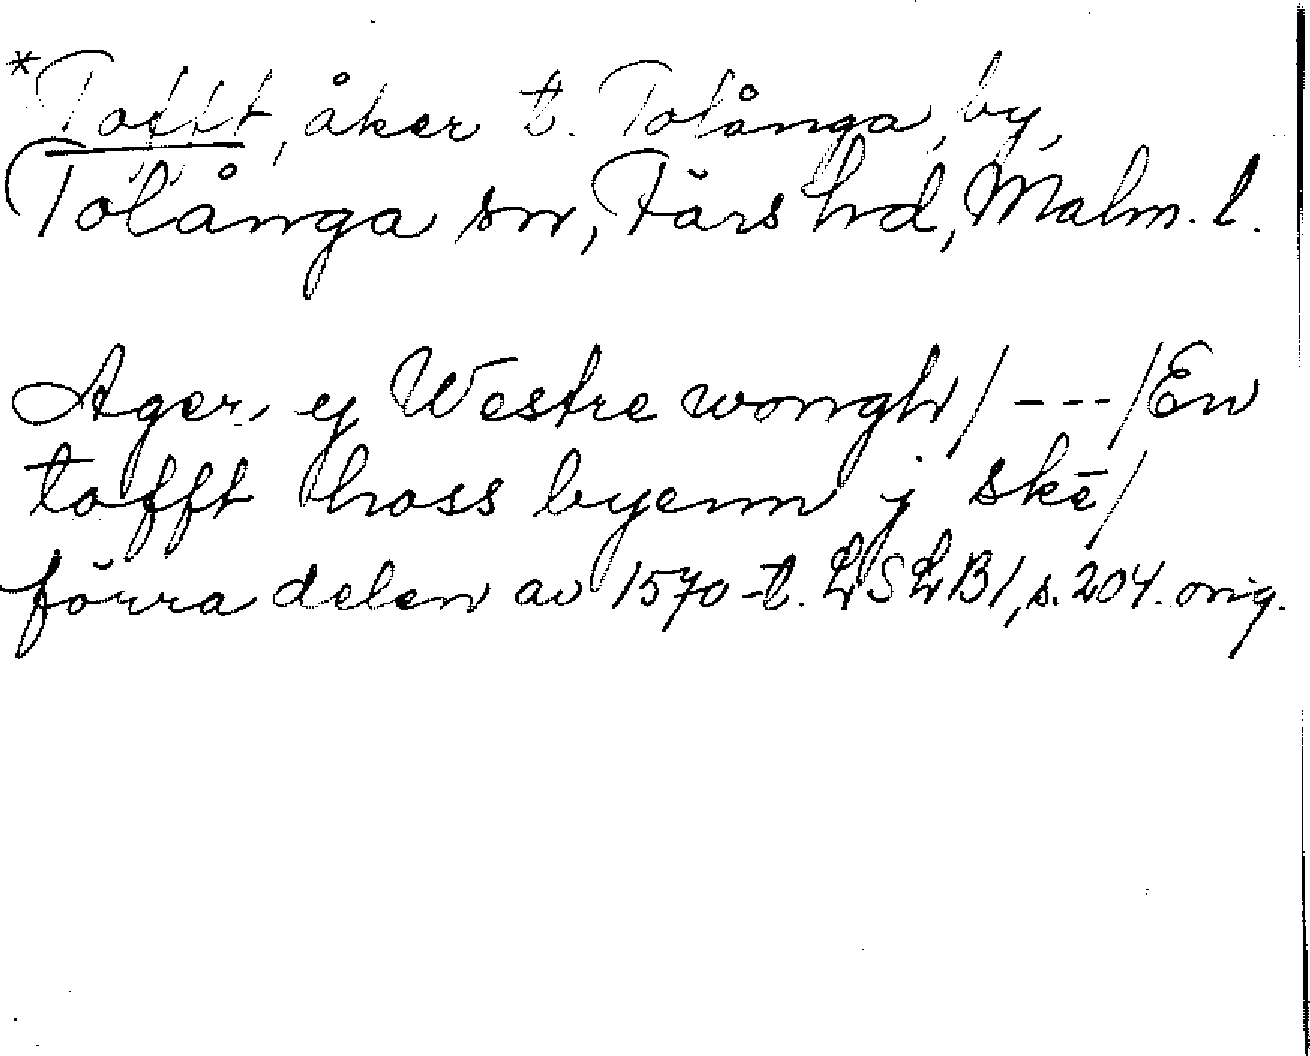 *Tofft, åker t. Tolånga, by,
Tolånga sn, Färs hd, Malm. l.
Ager. ej Westre wongh/ --- /En
tofft hoss byenn j skē/
förra delen av 1570-t. LSLB1, s. 204. orig.